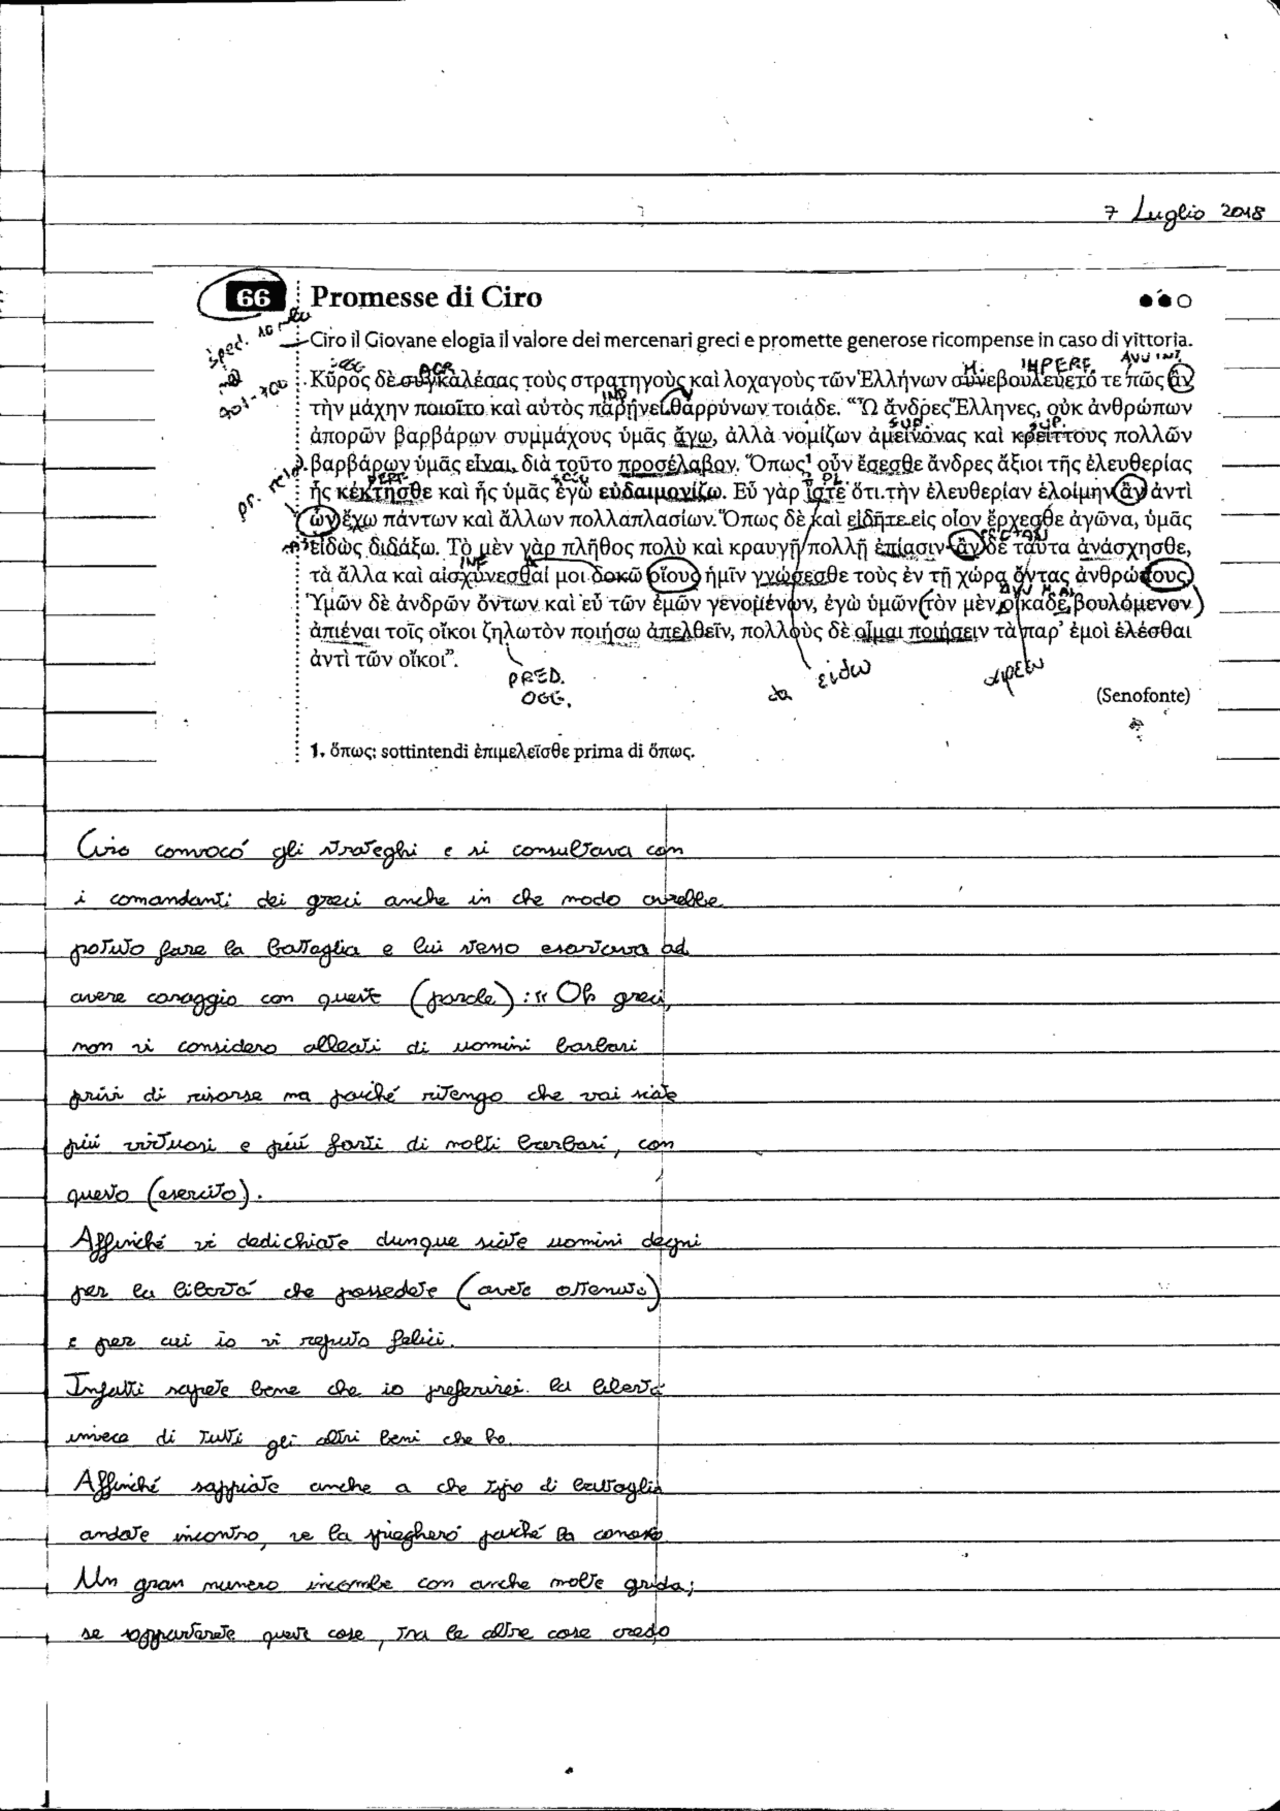 7 Luglio 2018
66 Promesse di Ciro
Ciro il Giovane elogia il valore dei mercenari greci e promette generose ricompense in caso di vittoria.
Κῦρος δὲ συγκαλέσας τοὺς στρατηγοὺς καὶ λοχαγοὺς τῶν Ἑλλήνων συνεβουλεύετό τε πῶς ἂν
τὴν μάχην ποιοῖτο καὶ αὐτὸς παρῄνει θαρρύνων τοιάδε. “Ὦ ἄνδρες Ἕλληνες, οὐκ ἀνθρώπων
ἀπορῶν βαρβάρων συμμάχους ὑμᾶς ἄγω, ἀλλὰ νομίζων ἀμείνονας καὶ κρείττους πολλῶν
βαρβάρων ὑμᾶς εἶναι, διὰ τοῦτο προσέλαβον. Ὅπως¹ οὖν ἔσεσθε ἄνδρες ἄξιοι τῆς ἐλευθερίας
ἧς κέκτησθε καὶ ἧς ὑμᾶς ἐγὼ εὐδαιμονίζω. Εὖ γὰρ ἴστε ὅτι τὴν ἐλευθερίαν ἑλοίμην ἂν ἀντὶ
ὧν ἔχω πάντων καὶ ἄλλων πολλαπλασίων. Ὅπως δὲ καὶ εἰδῆτε εἰς οἷον ἔρχεσθε ἀγῶνα, ὑμᾶς
εἰδὼς διδάξω. Τὸ μὲν γὰρ πλῆθος πολὺ καὶ κραυγῇ πολλῇ ἐπίασιν· ἂν δὲ ταῦτα ἀνάσχησθε,
τὰ ἄλλα καὶ αἰσχύνεσθαί μοι δοκῶ οἵους ἡμῖν γνώσεσθε τοὺς ἐν τῇ χώρᾳ ὄντας ἀνθρώπους.
Ὑμῶν δὲ ἀνδρῶν ὄντων καὶ εὖ τῶν ἐμῶν γενομένων, ἐγὼ ὑμῶν τὸν μὲν οἴκαδε βουλόμενον
ἀπιέναι τοῖς οἴκοι ζηλωτὸν ποιήσω ἀπελθεῖν, πολλοὺς δὲ οἶμαι ποιήσειν τὰ παρ’ ἐμοὶ ἑλέσθαι
ἀντὶ τῶν οἴκοι”.
PRED.
OGG.
da εἰδω
αιρεω
(Senofonte)
1. ὅπως: sottintendi ἐπιμελεῖσθε prima di ὅπως.
Ciro convocó gli strateghi e si consultava con
i comandanti dei greci anche in che modo avrebbe
potuto fare la battaglia e lui stesso esortava ad
avere coraggio con queste (parole): “ Oh greci,
non vi considero alleati di uomini barbari
privi di risorse ma poiché ritengo che voi siate
piú virtuosi e piú forti di molti barbari, con
questo (esercito).
Affinché vi dedichiate dunque siate uomini degni
per la libertá che possedete (avete ottenuto)
e per cui io vi reputo felici.
Infatti sapete bene che io preferirei la libertá
invece di tutti gli altri beni che ho.
Affinché sappiate anche a che tipo di battaglia
andate incontro, ve la spiegheró poiché la conosco
Un gran numero incombe con anche molte grida;
se sopportarete queste cose, tra le altre cose credo